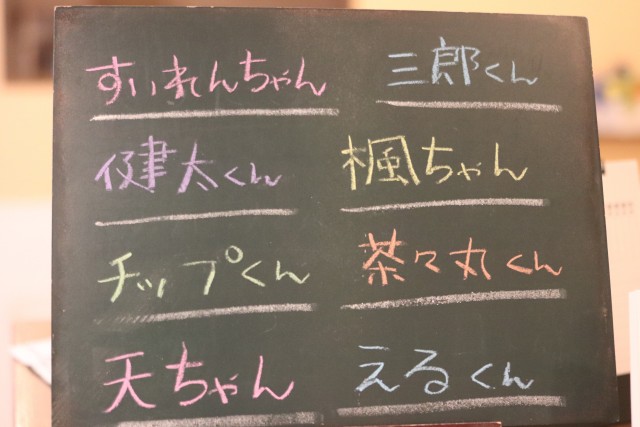 すいれんちゃん 三郎くん
健太くん 楓ちゃん
チップくん 茶々丸くん
天ちゃん えるくん